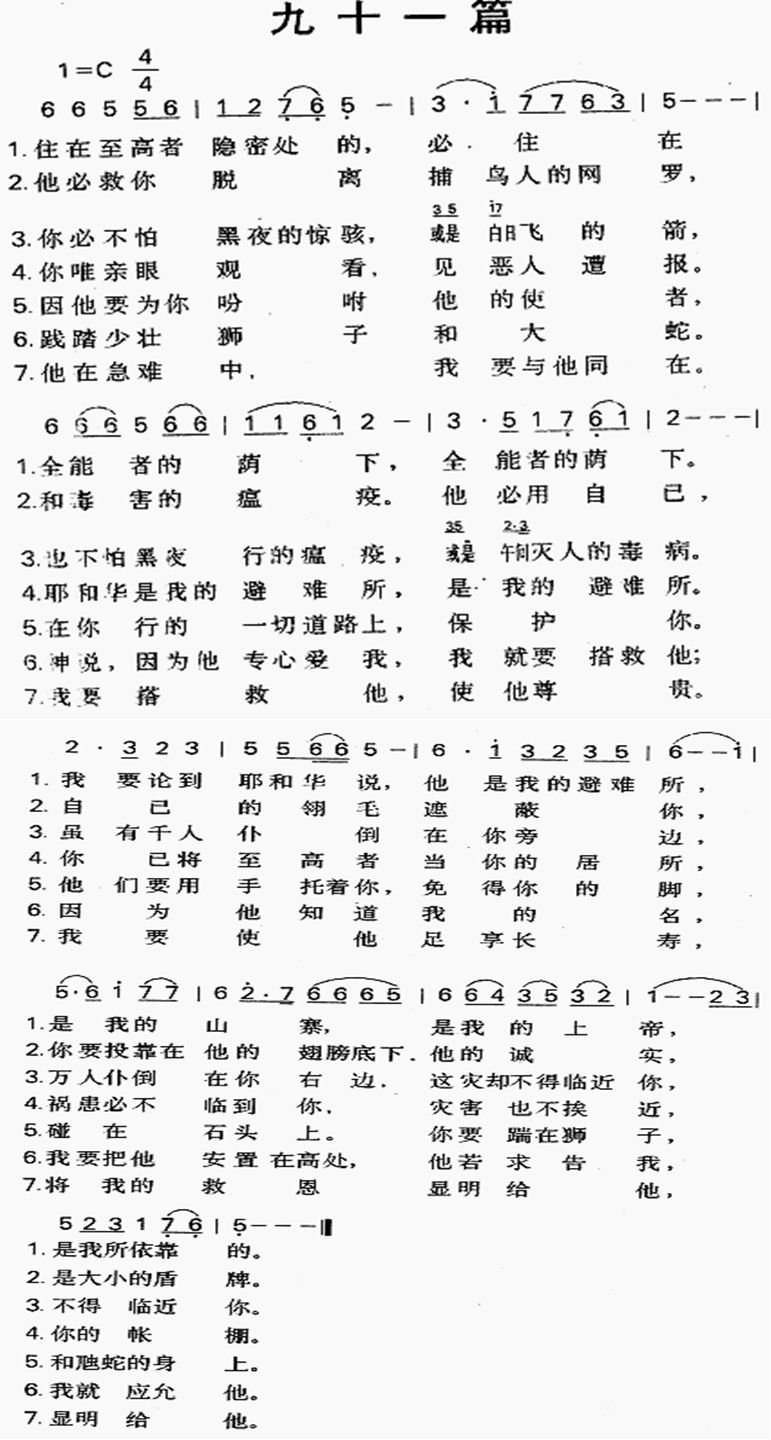 九十一篇
1=C 4/4
6 6 5 5 6 | 1 2 7 6 5 - | 3 · i 7 7 6 3 | 5 - - - |
1.住在至高者 隐密处 的， 必． 住 在
2.他必救你 脱 离 捕 鸟人的网 罗，
3 5 i7
3.你必不怕 黑夜的惊 骇， 或是 白日飞 的 箭，
4.你唯亲眼 观 看， 见 恶人 遭 报。
5.因他要为你 吩 咐 他 的使 者，
6.践踏少壮 狮 子 和 大 蛇。
7.他在急难 中， 我 要与他同 在。
6 6 6 5 6 6 | 1 1 6 1 2 - | 3 · 5 1 7 6 1 | 2 - - - |
1.全能 者的 荫 下， 全 能者的荫 下。
2.和毒 害的 瘟 疫。 他 必用 自 已，
35 2·3
3.也不怕黑夜 行的瘟 疫， 或是 午间灭人的毒 病。
4.耶和华是我的 避 难 所， 是 我的 避难 所。
5.在你 行的 一切道路上， 保 护 你。
6.神说，因为他 专心爱 我， 我 就要 搭救 他；
7.我要 搭 救 他， 使 他尊 贵。
2 · 3 2 3 | 5 5 6 6 5 - | 6 · i 3 2 3 5 | 6 - - i |
1. 我 要论到 耶和华 说， 他 是我的避难 所，
2. 自 已 的 翎 毛 遮 蔽 你，
3. 虽 有千人 仆 倒 在 你旁 边，
4. 你 已将 至 高 者 当 你的 居 所，
5. 他 们要用 手 托着你， 免 得你 的 脚，
6. 因 为 他 知 道 我 的 名，
7. 我 要 使 他 足 享长 寿，
5 · 6 i 7 7 | 6 2 · 7 6 6 6 5 | 6 6 4 3 5 3 2 | 1 - - 2 3 |
1.是 我的 山 寨， 是我 的 上 帝，
2.你要投靠在 他的 翅膀底下．他的 诚 实，
3.万人仆倒 在你 右 边， 这灾却不得临近 你，
4.祸患必不 临到 你， 灾害 也不挨 近，
5.碰 在 石头 上。 你要 踹在狮 子，
6.我要把他 安置 在高处， 他若 求 告 我，
7.将 我的 救 恩 显明 给 他，
5 2 3 1 7 6 | 5 - - - ‖
1. 是我所依靠 的。
2. 是大小的盾 牌。
3. 不得 临近 你。
4. 你的 帐 棚。
5. 和虺蛇的身 上。
6. 我就 应允 他。
7. 显明 给 他。